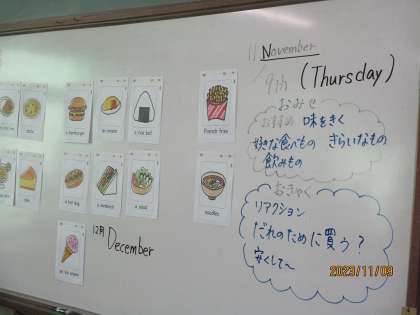 11 November
9th (Thursday)
おみせ
おすすめ 味をきく
好きな食べもの きらいなもの
飲みもの
おきゃく
リアクション
だれのために買う？
安くして〜
a hamburger
an omelet
a rice ball
French fries
pizza
a hot dog
a sandwich
a salad
noodles
an ice cream
12月 December
2023/11/09